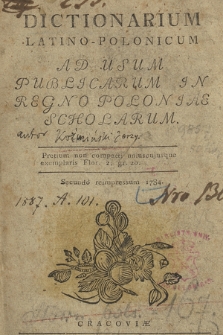 DICTIONARIUM
LATINO-POLONICUM
AD USUM
PUBLICARUM IN
REGNO POLONIAE
SCHOLARUM.
autor Koźmiński Jerzy
Pretium non compacti
exemplaris Flor. 2. gr.
Secundò reimpressum 1784.
1887. A. 101.
Nro 130
CRACOVIÆ